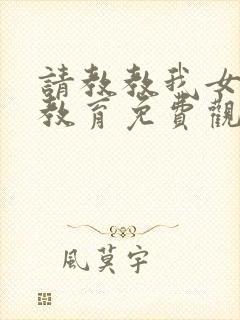 請教教我女
教育免費觀
風莫宇